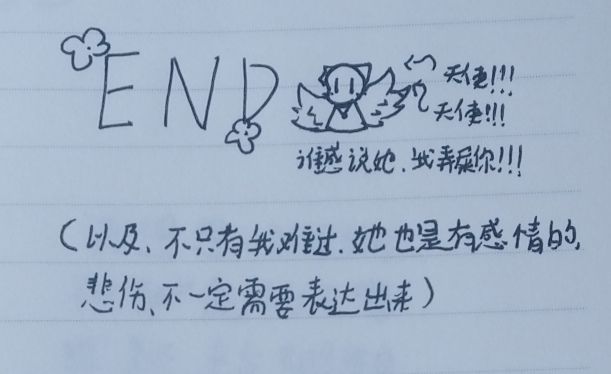 END
天使!!!
天使!!!
谁感说她、我弄屎你!!!
(以及、不只有我难过、她也是有感情的,
悲伤、不一定需要表达出来)